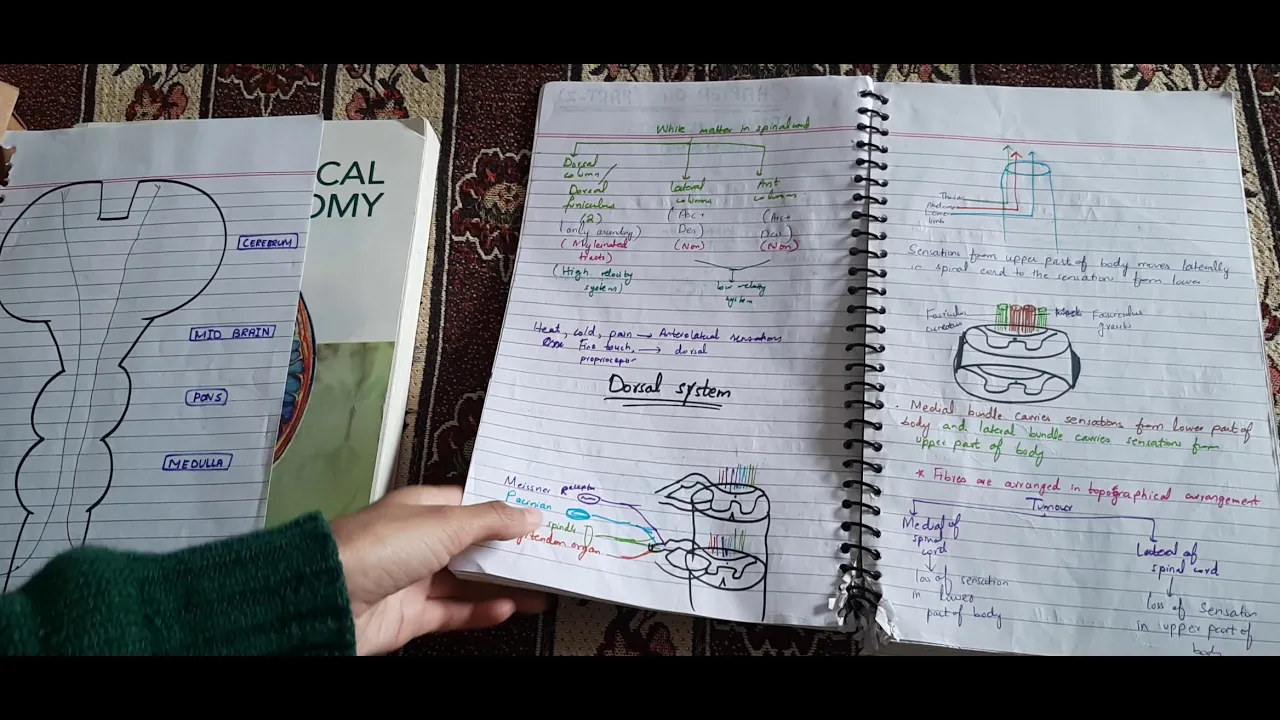 CAL
OMY
CEREBRUM
MID BRAIN
PONS
MEDULLA
White matter in spinal cord
Dorsal
column
Dorsal
funiculus
(2)
(only ascending)
(Mylenated
tracts)
(High velocity
system)
Lateral
columns
(Asc +
Des)
(Non)
Ant
column
(Asc +
Des)
(Non)
low velocity
system
Heat, cold, pain → Anterolateral sensations
Fine touch, → dorsal
proprioceptor
Dorsal system
Meissner receptor
Pacinian
spindle
tendon organ
Lower
limb
Sensations from upper part of body moves laterally
in spinal cord to the sensations from lower
Fasciculus
cuneatus
Fasciculus
gracilis
. Medial bundle carries sensations from lower part of
body and lateral bundle carries sensations from
upper part of body
* Fibres are arranged in topographical arrangement
Tumour
Medial of
spinal
cord
loss of sensation
in lower
part of body
Lateral of
spinal cord
loss of sensation
in upper part of
body